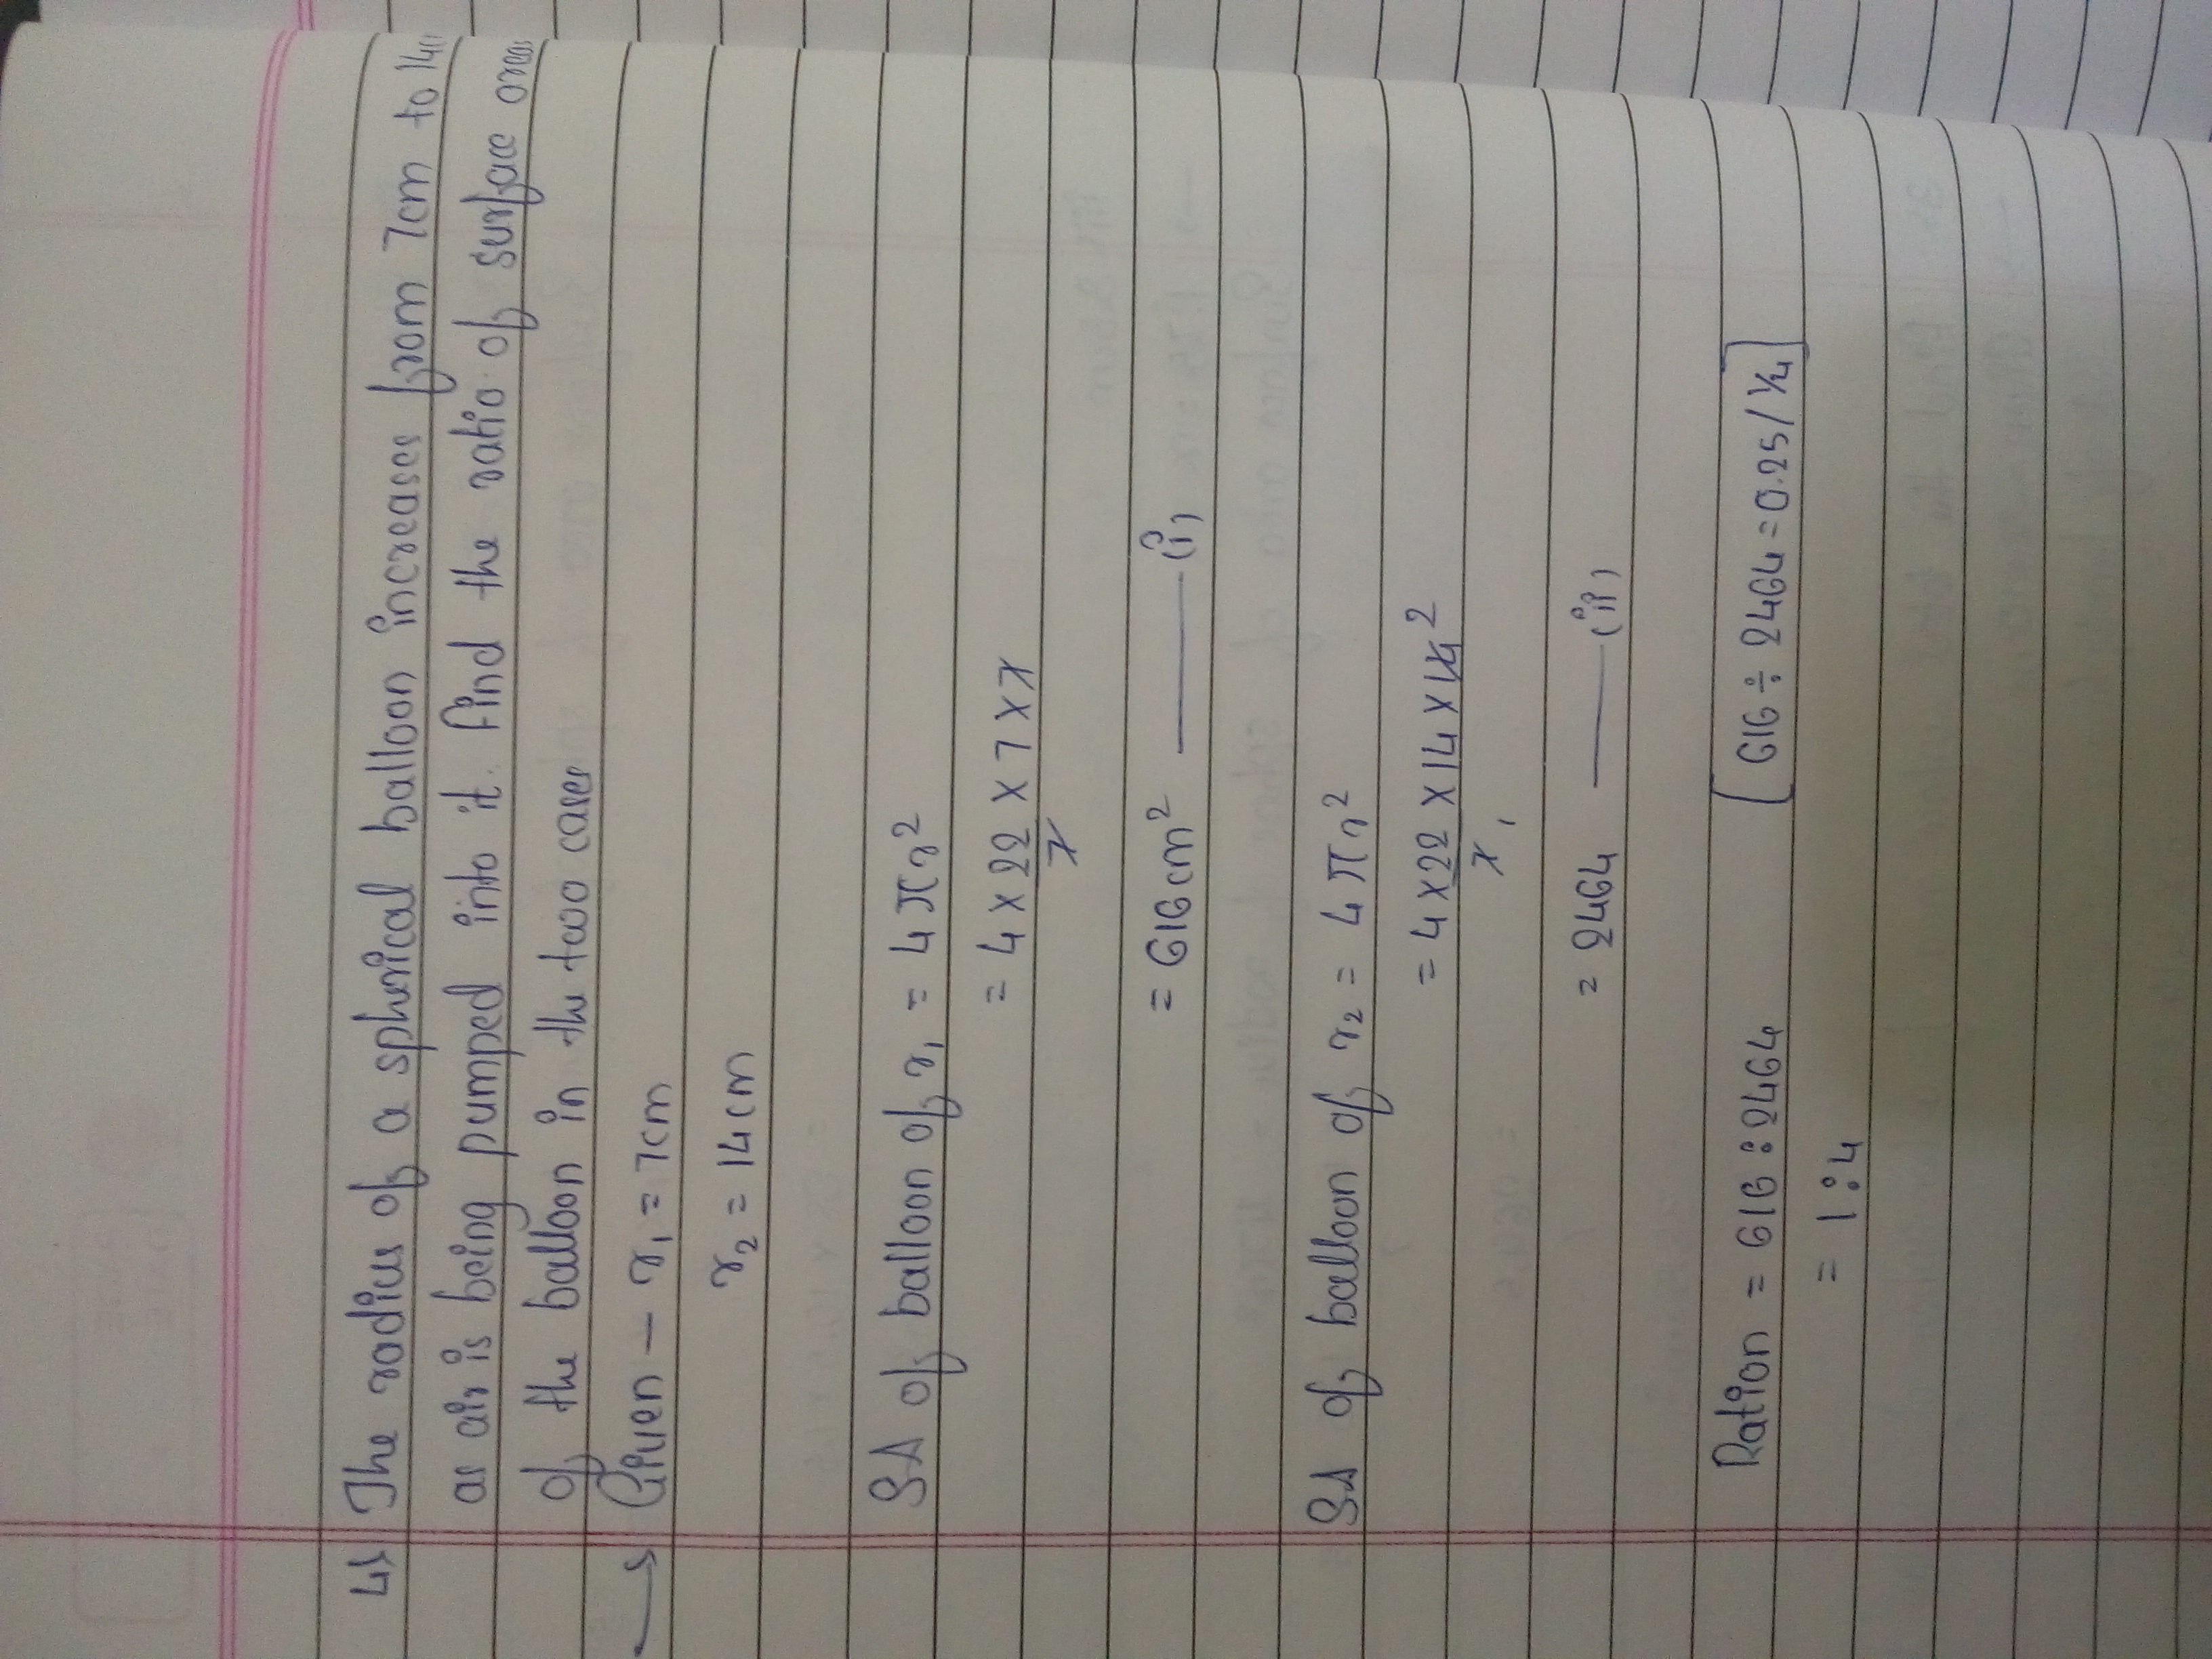 4) The radius of a spherical balloon increases from 7cm to 14
as air is being pumped into it. Find the ratio of surface areas
of the balloon in the two cases
→ Given - r₁ = 7cm
r₂ = 14cm
SA of balloon of r₁ = 4πr²
= 4 × 22/7 × 7 × 7
= 616cm² —— (i)
SA of balloon of r₂ = 4πr²
= 4 × 22/7 × 14 × 14 2
1
= 2464 —— (ii)
Ration = 616 : 2464 [616 ÷ 2464 = 0.25/¼]
= 1 : 4